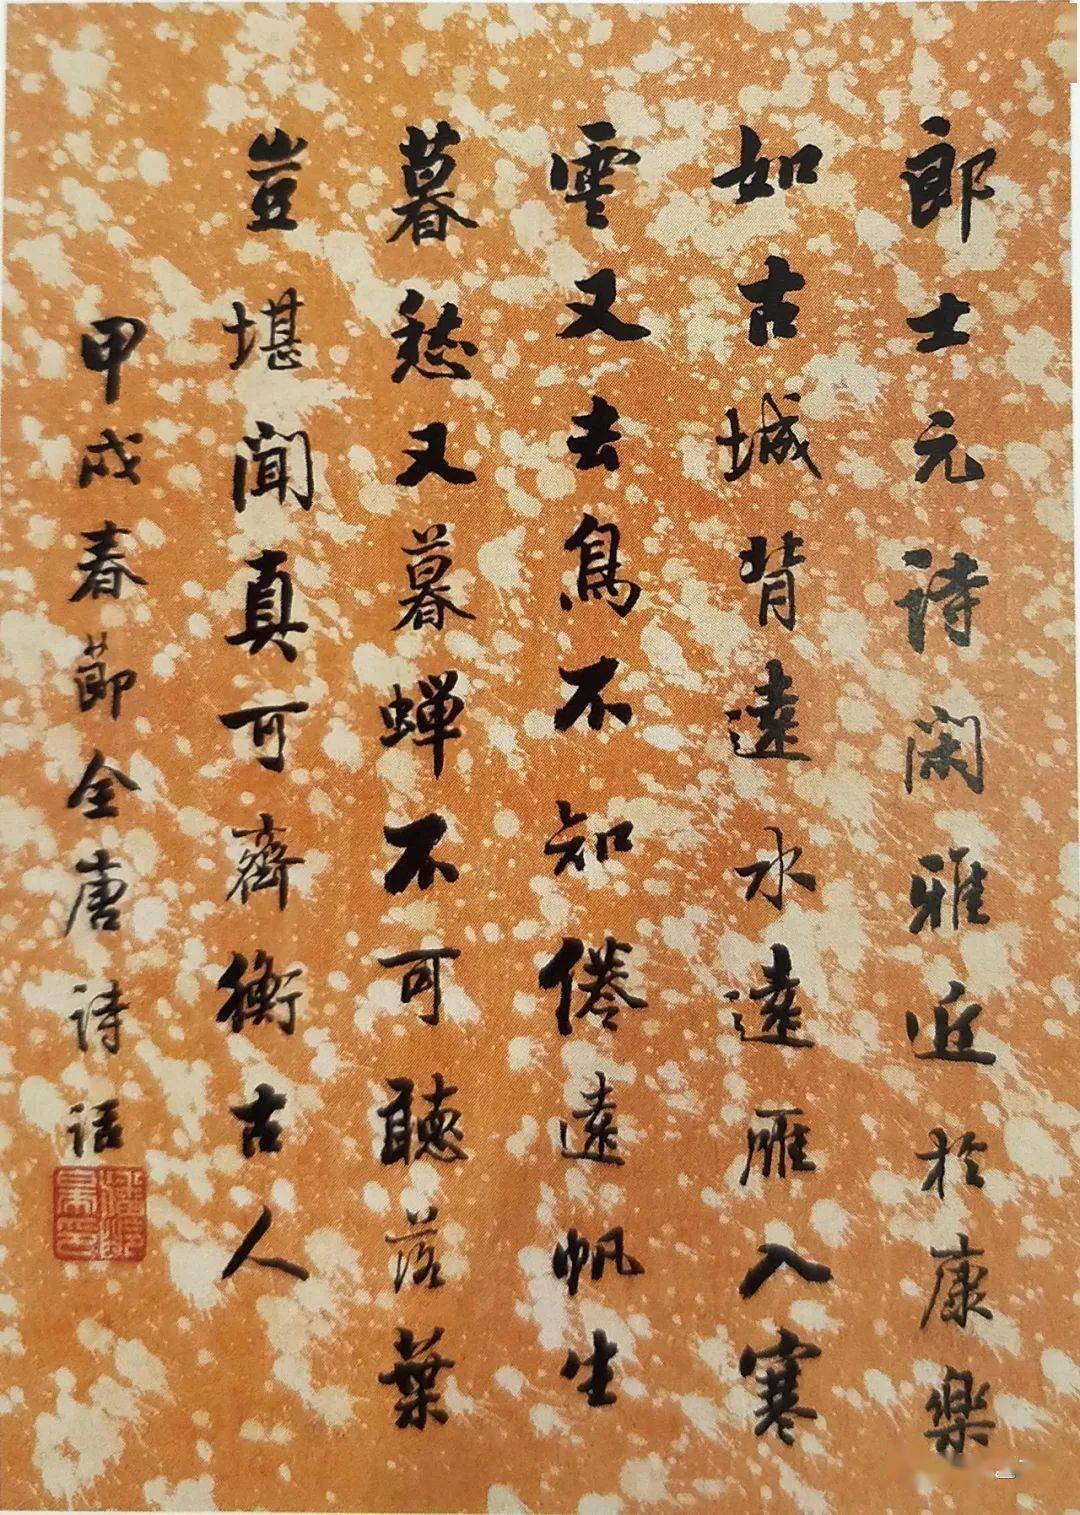 郎士元诗闲雅近於康樂
如古城背遠水遠雁入寒
雲又去鳥不知倦遠帆生
暮愁又暮蝉不可聽落葉
豈堪闻真可齊衡古人
甲戌春節全唐诗话